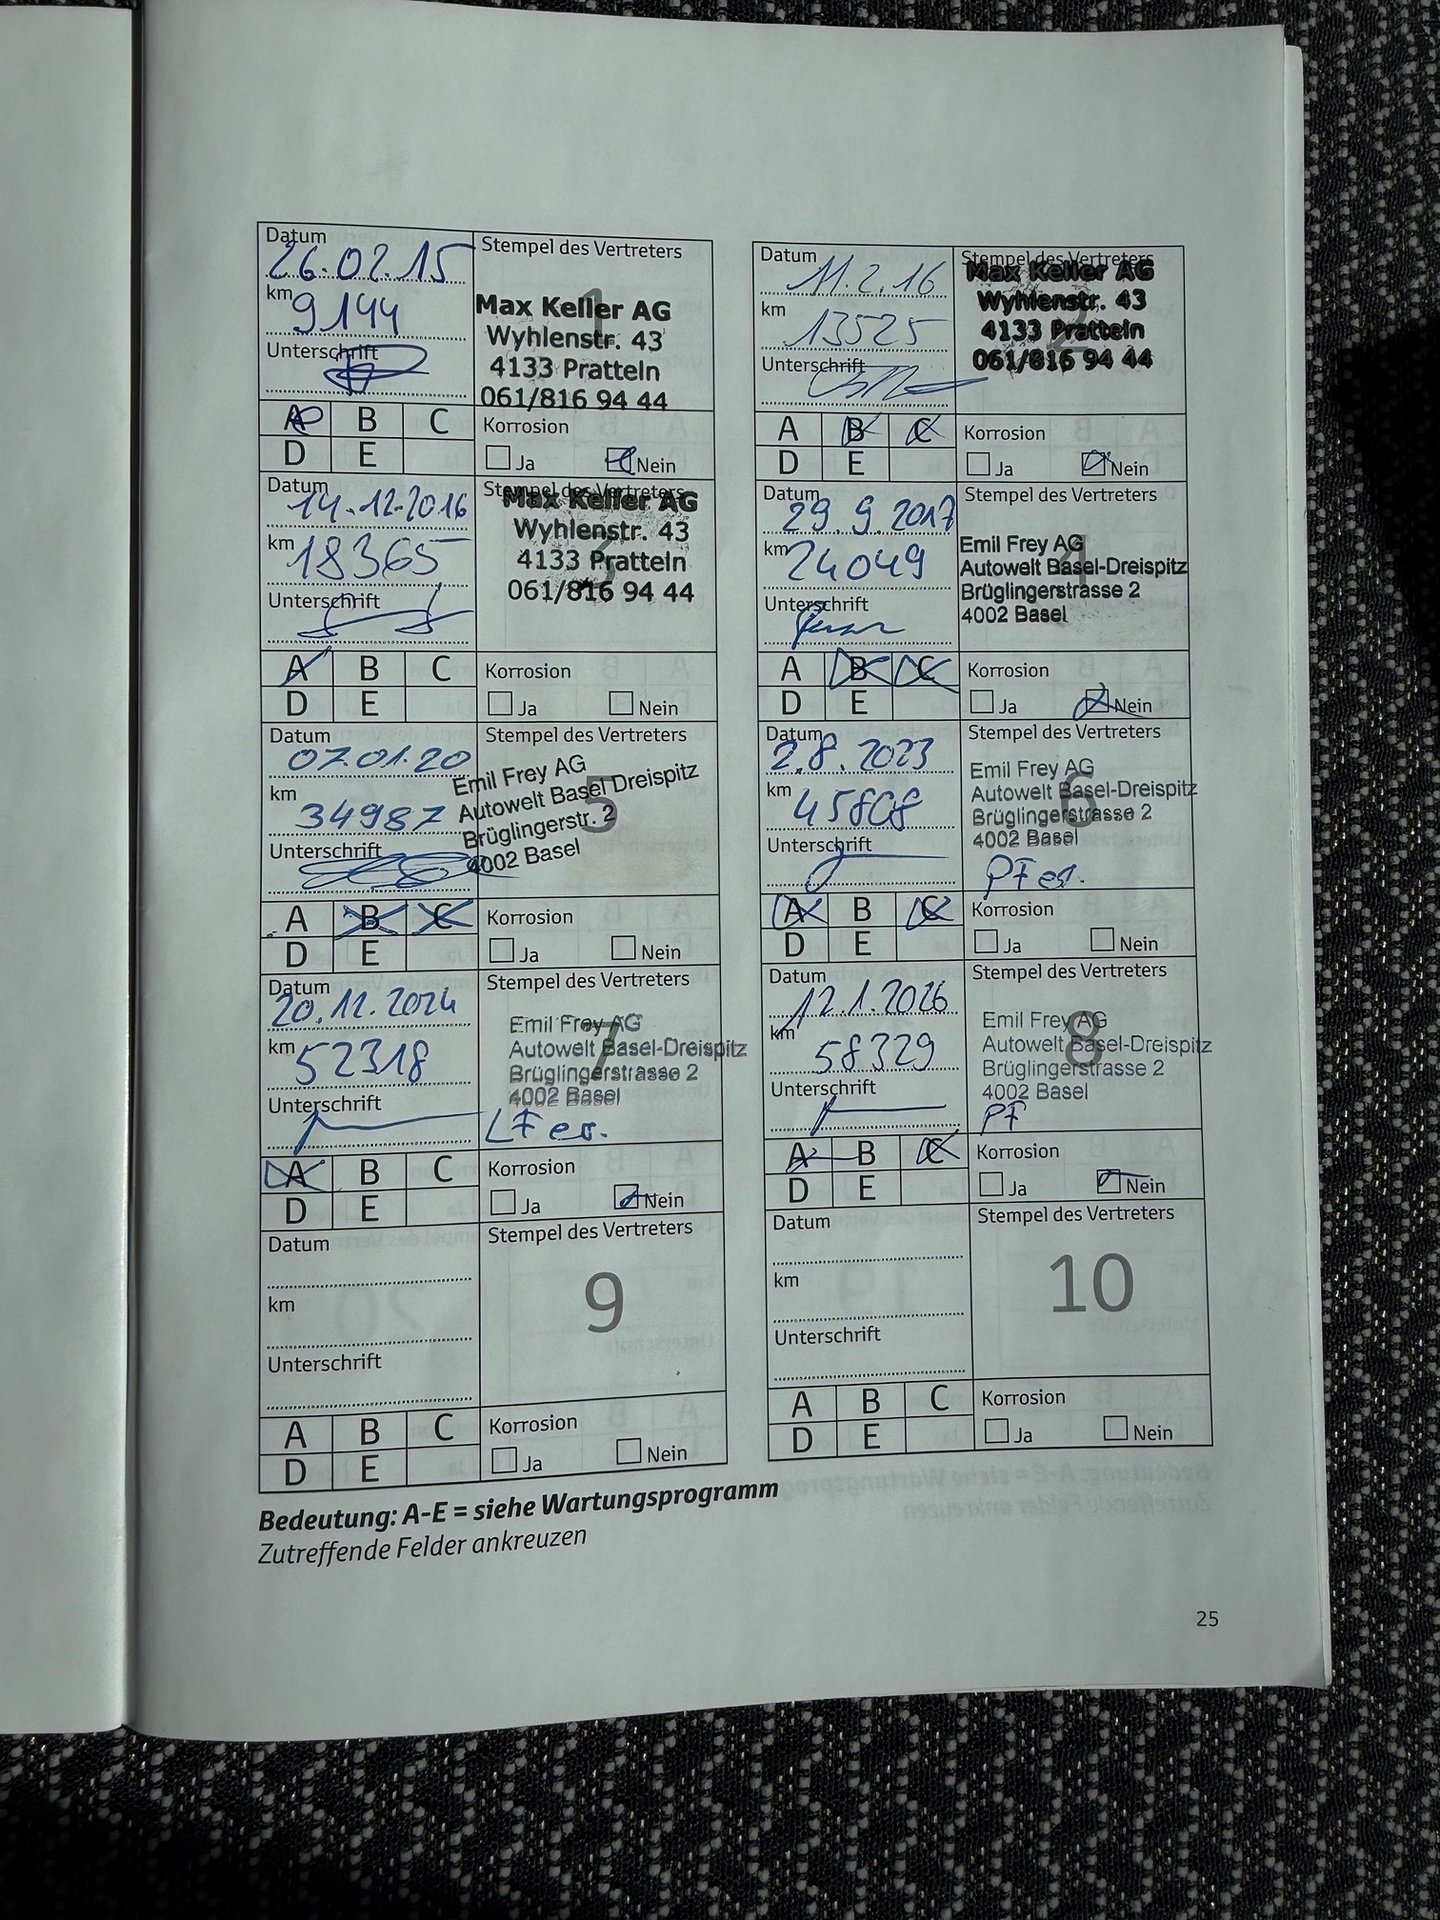 Datum
26.02.15
km 9144
Unterschrift
Stempel des Vertreters
1
Max Keller AG
Wyhlenstr. 43
4133 Pratteln
061/816 94 44
A B C
D E
Korrosion
Ja Nein
Datum
11.2.16
km 13525
Unterschrift
Stempel des Vertreters
2
Max Keller AG
Wyhlenstr. 43
4133 Pratteln
061/816 94 44
A B C
D E
Korrosion
Ja Nein
Datum
14.12.2016
km 18365
Unterschrift
Stempel des Vertreters
3
Max Keller AG
Wyhlenstr. 43
4133 Pratteln
061/816 94 44
A B C
D E
Korrosion
Ja Nein
Datum
29.9.2017
km 24049
Unterschrift
Stempel des Vertreters
4
Emil Frey AG
Autowelt Basel-Dreispitz
Brüglingerstrasse 2
4002 Basel
A B C
D E
Korrosion
Ja Nein
Datum
07.01.20
km
34987
Unterschrift
Stempel des Vertreters
5
Emil Frey AG
Autowelt Basel Dreispitz
Brüglingerstr. 2
4002 Basel
A B C
D E
Korrosion
Ja Nein
Datum
2.8.2023
km 45808
Unterschrift
Stempel des Vertreters
6
Emil Frey AG
Autowelt Basel-Dreispitz
Brüglingerstrasse 2
4002 Basel
PF er.
A B C
D E
Korrosion
Ja Nein
Datum
20.12.2024
km 52318
Unterschrift
Stempel des Vertreters
7
Emil Frey AG
Autowelt Basel-Dreispitz
Brüglingerstrasse 2
4002 Basel
LF er.
A B C
D E
Korrosion
Ja Nein
Datum
12.1.2026
km 58329
Unterschrift
Stempel des Vertreters
8
Emil Frey AG
Autowelt Basel-Dreispitz
Brüglingerstrasse 2
4002 Basel
PF
A B C
D E
Korrosion
Ja Nein
Datum
km
Unterschrift
Stempel des Vertreters
9
A B C
D E
Korrosion
Ja Nein
Datum
km
Unterschrift
Stempel des Vertreters
10
A B C
D E
Korrosion
Ja Nein
Bedeutung: A-E = siehe Wartungsprogramm
Zutreffende Felder ankreuzen
25